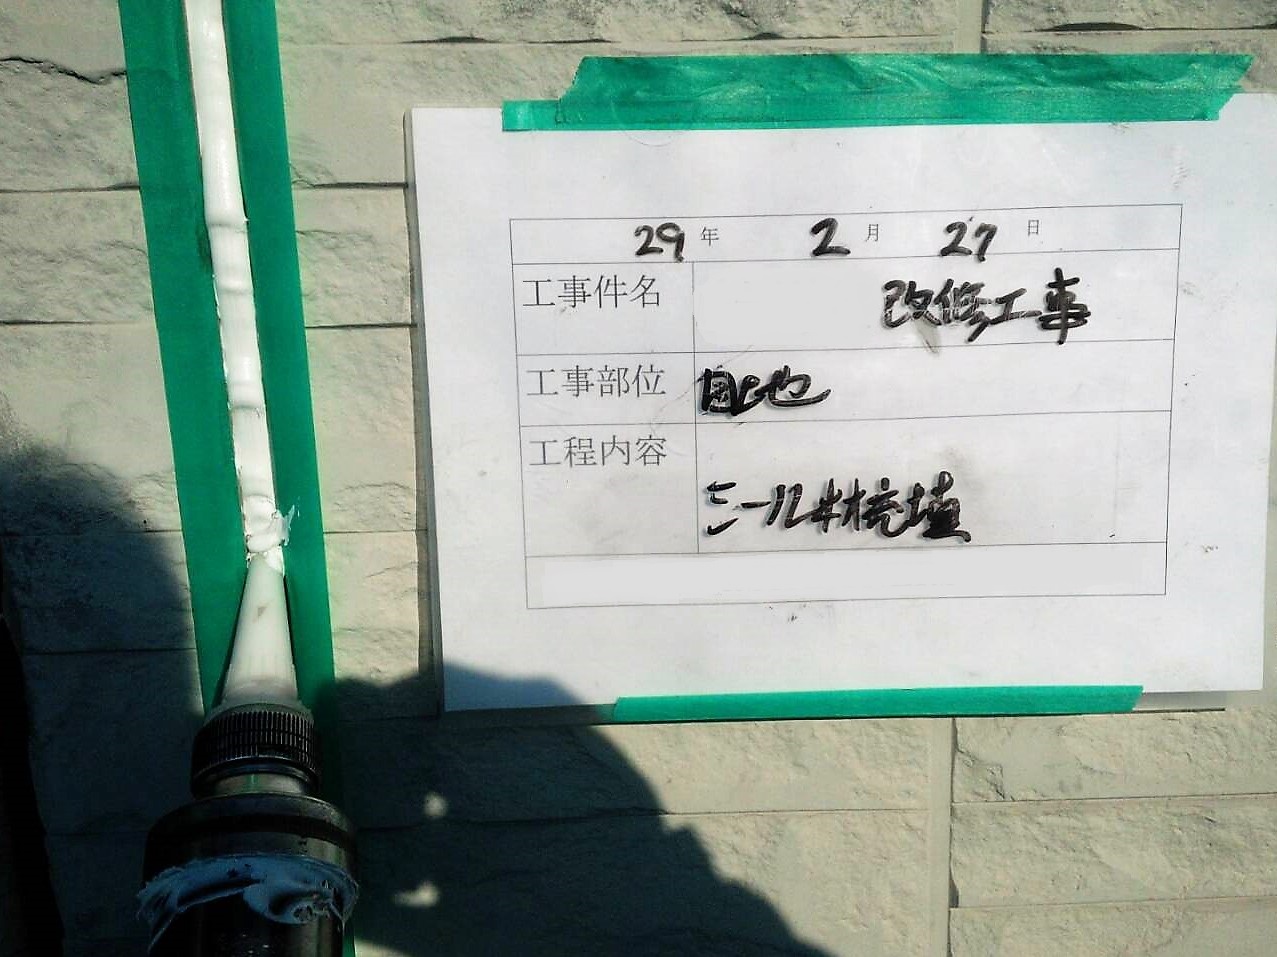 29年 2月 27日
工事件名 改修工事
工事部位 目地
工程内容
シール材充填